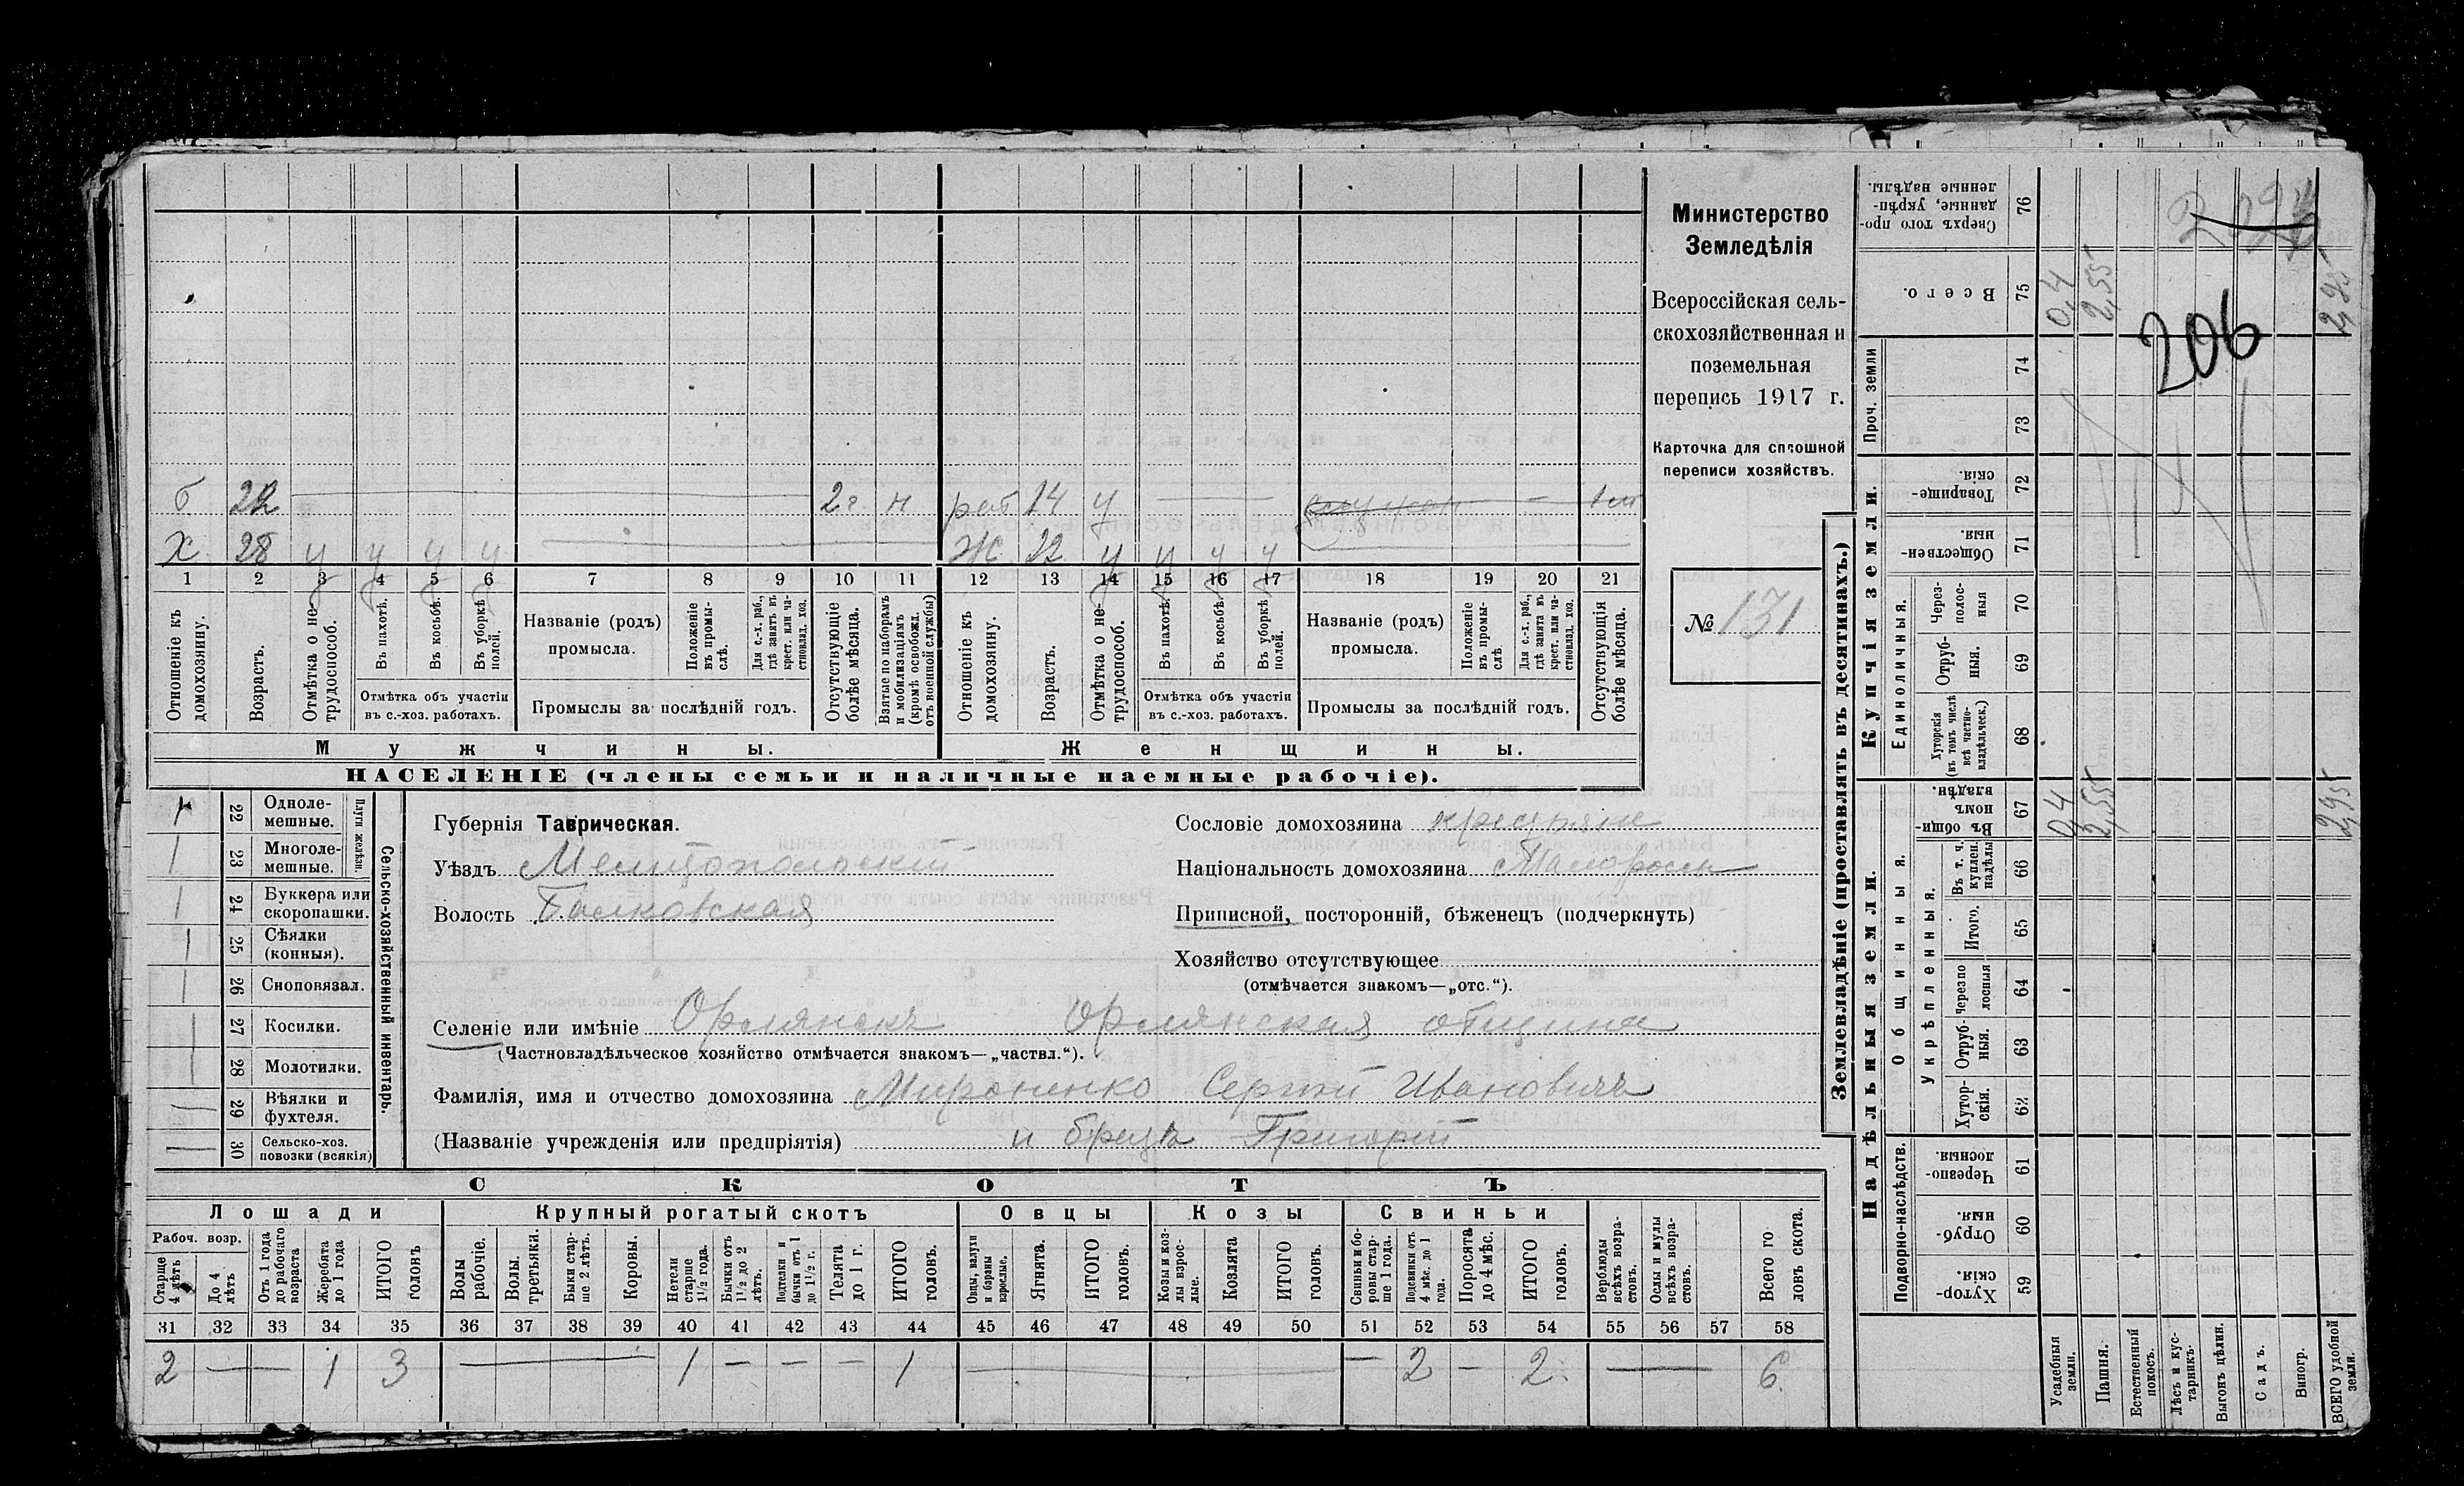 б 22 2 г. н раб 14 у
Х. 28 у у у у Ж. 22 у у у у
1 2 3 4 5 6 7 8 9 10 11 12 13 14 15 16 17 18 19 20 21
Отношеніе къ домохозяину.
Возрастъ.
Отмѣтка о не-трудоспособ.
Въ пахотѣ.
Въ косьбѣ.
Въ уборкѣ полей.
Отмѣтка объ участіи
въ с.-хоз. работахъ.
Названіе (родъ)
промысла.
Положеніе въ промы-слѣ.
Для с.-х. раб., гдѣ занятъ въ крест. или ча-стновлад. хоз.
Промыслы за послѣдній годъ.
Отсутствующіе болѣе мѣсяца.
Взятые по наборамъ и мобилизаціямъ (кромѣ освобожд. отъ военной службы)
Отношеніе къ домохозяину.
Возрастъ.
Отмѣтка о не-трудоспособ.
Въ пахотѣ.
Въ косьбѣ.
Въ уборкѣ полей.
Отмѣтка объ участіи
въ с.-хоз. работахъ.
Названіе (родъ)
промысла.
Положеніе въ промы-слѣ
Для с.-х. раб., гдѣ занята въ крест. или ча-стновлад. хоз.
Промыслы за послѣдній годъ.
Отсутствующія болѣе мѣсяца.
Мужчины.
Женщины.
НАСЕЛЕНІЕ (члены семьи и наличные наемные рабочіе).
Министерство
Земледѣлія
Всероссійская сель-
скохозяйственная и
поземельная
перепись 1917 г.
Карточка для сплошной
переписи хозяйствъ.
№ 131
22 Одноле-мешные.
23 Многоле-мешные.
Плуги желѣзн.
24 Буккера или скоропашки.
25 Сѣялки (конныя).
26 Сноповязал.
27 Косилки.
28 Молотилки.
29 Вѣялки и фухтеля.
30 Сельско-хоз. повозки (всякія)
Сельско-хозяйственный инвентарь.
Губернія Таврическая.
Уѣздъ Мелитопольскій
Волость Балковская
Сословіе домохозяина крестьяне
Національность домохозяина Малороссъ
Приписной, посторонній, бѣженецъ (подчеркнуть)
Хозяйство отсутствующее
(отмѣчается знакомъ—„отс.“).
Селеніе или имѣніе Орлянскъ Орлянская община
(Частновладѣльческое хозяйство отмѣчается знакомъ—„частвл.“).
Фамилія, имя и отчество домохозяина Мироненко Сергѣй Ивановичъ
(Названіе учрежденія или предпріятія) и братъ Григорій
СКОТЪ
Лошади Крупный рогатый скотъ Овцы Козы Свиньи
Рабоч. возр.
Старше 4 лѣтъ
До 4 лѣтъ
Отъ 1 года до рабочаго возраста
Жеребята до 1 года
ИТОГО головъ
Волы рабочіе.
Волы. третьяки.
Быки стар-ше 2 лѣтъ.
Коровы.
Нетели старше 1 1/2 года.
Бычки отъ 1 1/2 до 2 лѣтъ.
Подтелки и бычки отъ 1 до 1 1/2 г.
Телята до 1 г.
ИТОГО головъ.
Овцы, валухи и бараны взрослые.
Ягнята.
ИТОГО головъ.
Козы и коз-лы взрос-лые.
Козлята
ИТОГО головъ.
Свиньи и бо-ровы стар-ше 1 года.
Подсвинки отъ 4 мѣс. до 1 года.
Поросята до 4 мѣс.
ИТОГО головъ.
Верблюды всѣхъ возра-стовъ.
Ослы и мулы всѣхъ возра-стовъ.
Всего го-ловъ скота.
31 32 33 34 35 36 37 38 39 40 41 42 43 44 45 46 47 48 49 50 51 52 53 54 55 56 57 58
2 — 1 3 — 1 — — — 1 — — 2 — 2 — 6
Землевладѣніе (проставлять въ десятинахъ.)
Надѣльныя земли.
Купчія земли.
Проч. земли
Подворно-наслѣдств.
Общинныя.
Укрѣпленныя.
Единоличныя.
76 Сверхъ того про-данные, укрѣп-ленные надѣлы.
75 Всего. 0,4 2,55 2,95
206
74
73
72 Товарище-скія.
71 Обществен-ныя
70 Через-полос-ныя
69 Отруб-ныя.
68 Хуторскія (въ томъ числѣ всѣ частно-владѣльческ.)
67 Въ общин-номъ владѣн. 0,4 2,55 2,95
66 Въ т. ч. куплен. надѣлы
65 Итого.
64 Черезпо-лосныя
63 Отруб-ныя.
62 Хутор-скія.
61 Черезпо-лосныя.
60 Отруб-ныя.
59 Хутор-скія.
Усадебныя земли.
Пашня.
Естественный покосъ.
Лѣсъ и кус-тарникъ.
Выгонъ цѣлин.
Садъ.
Виногр.
ВСЕГО удобной земли.